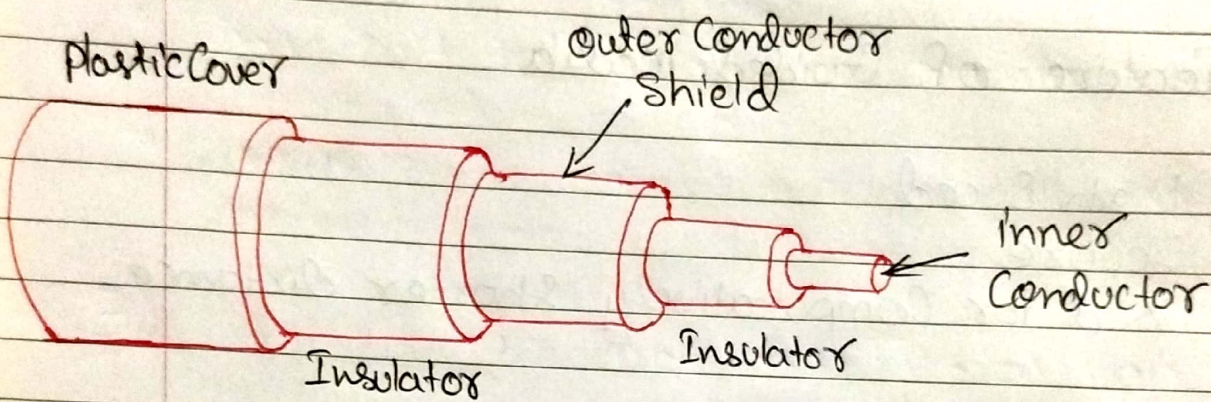 Plastic Cover
Outer Conductor
Shield
inner
Conductor
Insulator
Insulator